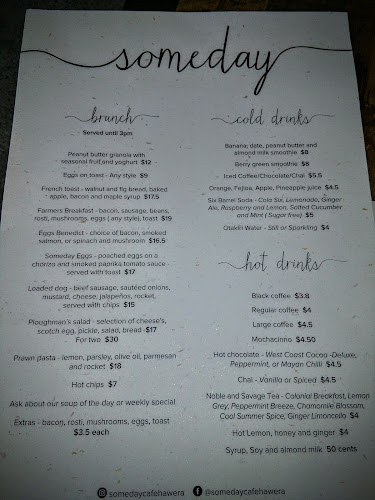 someday
brunch
Served until 2pm
Peanut butter granola with
seasonal fruit and yoghurt $12
Eggs on toast - Any style $9
French toast - walnut and fig bread, baked
apple, bacon and maple syrup $17.5
Farmers Breakfast - bacon, sausage, beans,
rosti, mushrooms, eggs ( any style), toast $19
Eggs Benedict - choice of bacon, smoked
salmon, or spinach and mushroom $16.5
Someday Eggs - poached eggs on a
chorizo and smoked paprika tomato sauce -
served with toast $17
Loaded dog - beef sausage, sautéed onions,
mustard, cheese, jalapeños, rocket,
served with chips $15
Ploughman's salad - selection of cheese's,
scotch egg, pickle, salad, bread $17
For two $30
Prawn pasta - lemon, parsley, olive oil, parmesan
and rocket $18
Hot chips $7
Ask about our soup of the day or weekly special
Extras - bacon, rosti, mushrooms, eggs, toast
$3.5 each
cold drinks
Banana, date, peanut butter and
almond milk smoothie $8
Berry green smoothie $8
Iced Coffee/Chocolate/Chai $5.5
Orange, Feijoa, Apple, Pineapple juice $4.5
Six Barrel Soda - Cola Six, Lemonade, Ginger
Ale, Raspberry and Lemon, Salted Cucumber
and Mint ( Sugar free) $5
Otakiri Water - Still or Sparkling $4
hot drinks
Black coffee $3.8
Regular coffee $4
Large coffee $4.5
Mochaccino $4.50
Hot chocolate - West Coast Cocoa -Deluxe,
Peppermint, or Mayan Chilli $4.5
Chai - Vanilla or Spiced $4.5
Noble and Savage Tea - Colonial Breakfast, Lemon
Grey, Peppermint Breeze, Chamomile Blossom,
Cool Summer Spice, Ginger Limoncello $4
Hot Lemon, honey and ginger $4
Syrup, Soy and almond milk 50 cents
somedaycafehawera @somedaycafehawera